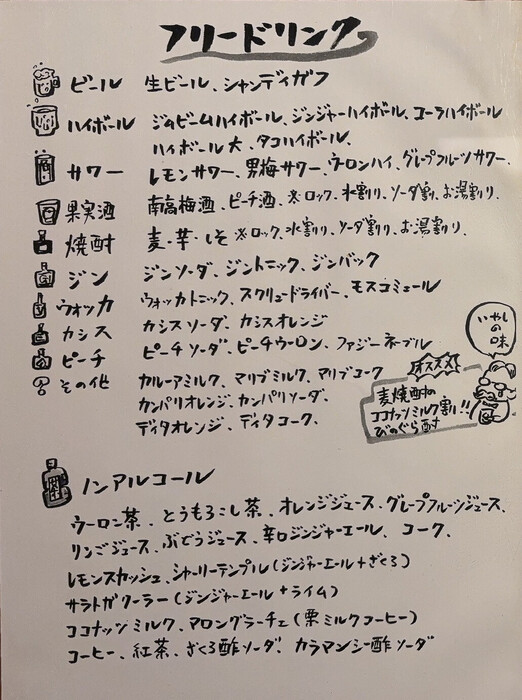 フリードリンク
ビール 生ビール、シャンディガフ
ハイボール ジムビームハイボール、ジンジャーハイボール、コーラハイボール
ハイボール大、タコハイボール、
サワー レモンサワー、男梅サワー、ウーロンハイ、グレープフルーツサワー、
果実酒 南高梅酒、ピーチ酒、※ロック、水割り、ソーダ割り、お湯割り、
焼酎 麦・芋・しそ ※ロック、水割り、ソーダ割り、お湯割り、
ジン ジンソーダ、ジントニック、ジンバック
ウォッカ ウォッカトニック、スクリュードライバー、モスコミュール
カシス カシスソーダ、カシスオレンジ
ピーチ ピーチソーダ、ピーチウーロン、ファジーネーブル
その他 カルーアミルク、マリブミルク、マリブコーク
カンパリオレンジ、カンパリソーダ、
ディタオレンジ、ディタコーク、
いやしの味
オススメ!
麦焼酎の
ココナッツミルク割り!!
びのぐら酎
ノンアルコール
ウーロン茶、とうもろこし茶、オレンジジュース、グレープフルーツジュース、
りんごジュース、ぶどうジュース、辛口ジンジャーエール、コーク、
レモンスカッシュ、シャーリーテンプル(ジンジャーエール+ざくろ)
サラトガクーラー(ジンジャーエール+ライム)
ココナッツミルク、マロングラーチェ(栗ミルクコーヒー)
コーヒー、紅茶、ざくろ酢ソーダ、カラマンシー酢ソーダ